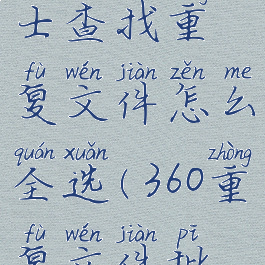 士查找重
fù wén jiàn zěn me
复文件怎么
quán xuǎn zhòng
全选(360重
fù wén jiàn pī
复文件批